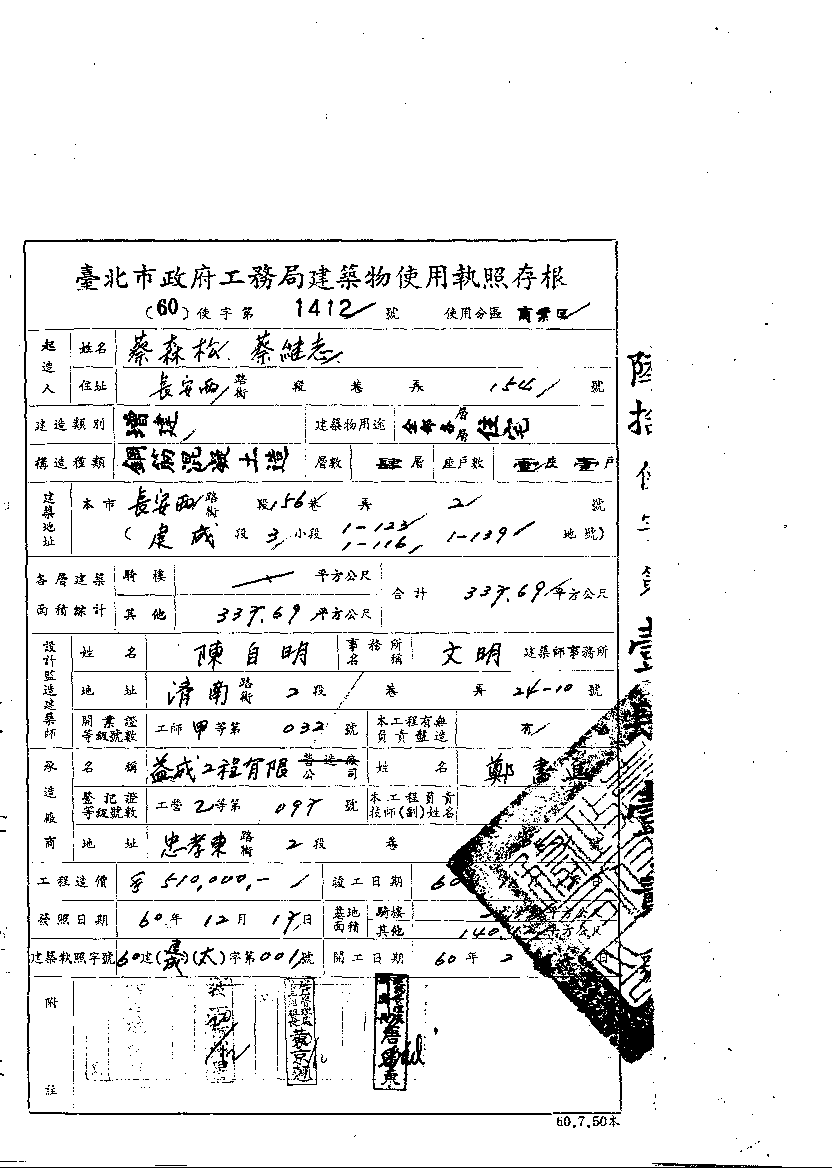 臺北市政府工務局建築物使用執照存根
(60)使字第 1412 號 使用分區 商業區
起造人 姓名 蔡森松 蔡維志
住址 長安西 路街 段 巷 弄 154 號
建造類別 增建 建築物用途 全部各層 住宅
構造種類 鋼筋混凝土造 層數 肆層 座戶數 壹座 壹戶
建築地址 本市 長安西 路街 段 156 巷 弄 2 號
段 3 小段 1-123 1-116 1-139 地號)
各層建築面積綜計 騎樓 平方公尺
其他 337.69 平方公尺 合計 337.69 平方公尺
設計監造建築師 姓名 陳自明 事務所名稱 文明 建築師事務所
地址 濟南 路街 2 段 巷 弄 24-10 號
開業證等級號數 工師 甲 等第 032 號 本工程有無負責監造 有
承造廠商 名稱 益成工程有限 營造廠公司 姓名 鄭
登記證等級號數 工營 乙 等第 號 本工程負責技師(副)姓名
地址 忠孝東 路街 2 段 巷 號
工程造價 510,000,- 竣工日期 60
發照日期 60 年 12 月 17 日 基地面積 騎樓 平方公尺
其他 140. 平方公尺
建築執照字號 60 建( )(太)字第 001 號 開工日期 60 年 2 日
附註
黃京
60.7.50本
陸拾使字第壹